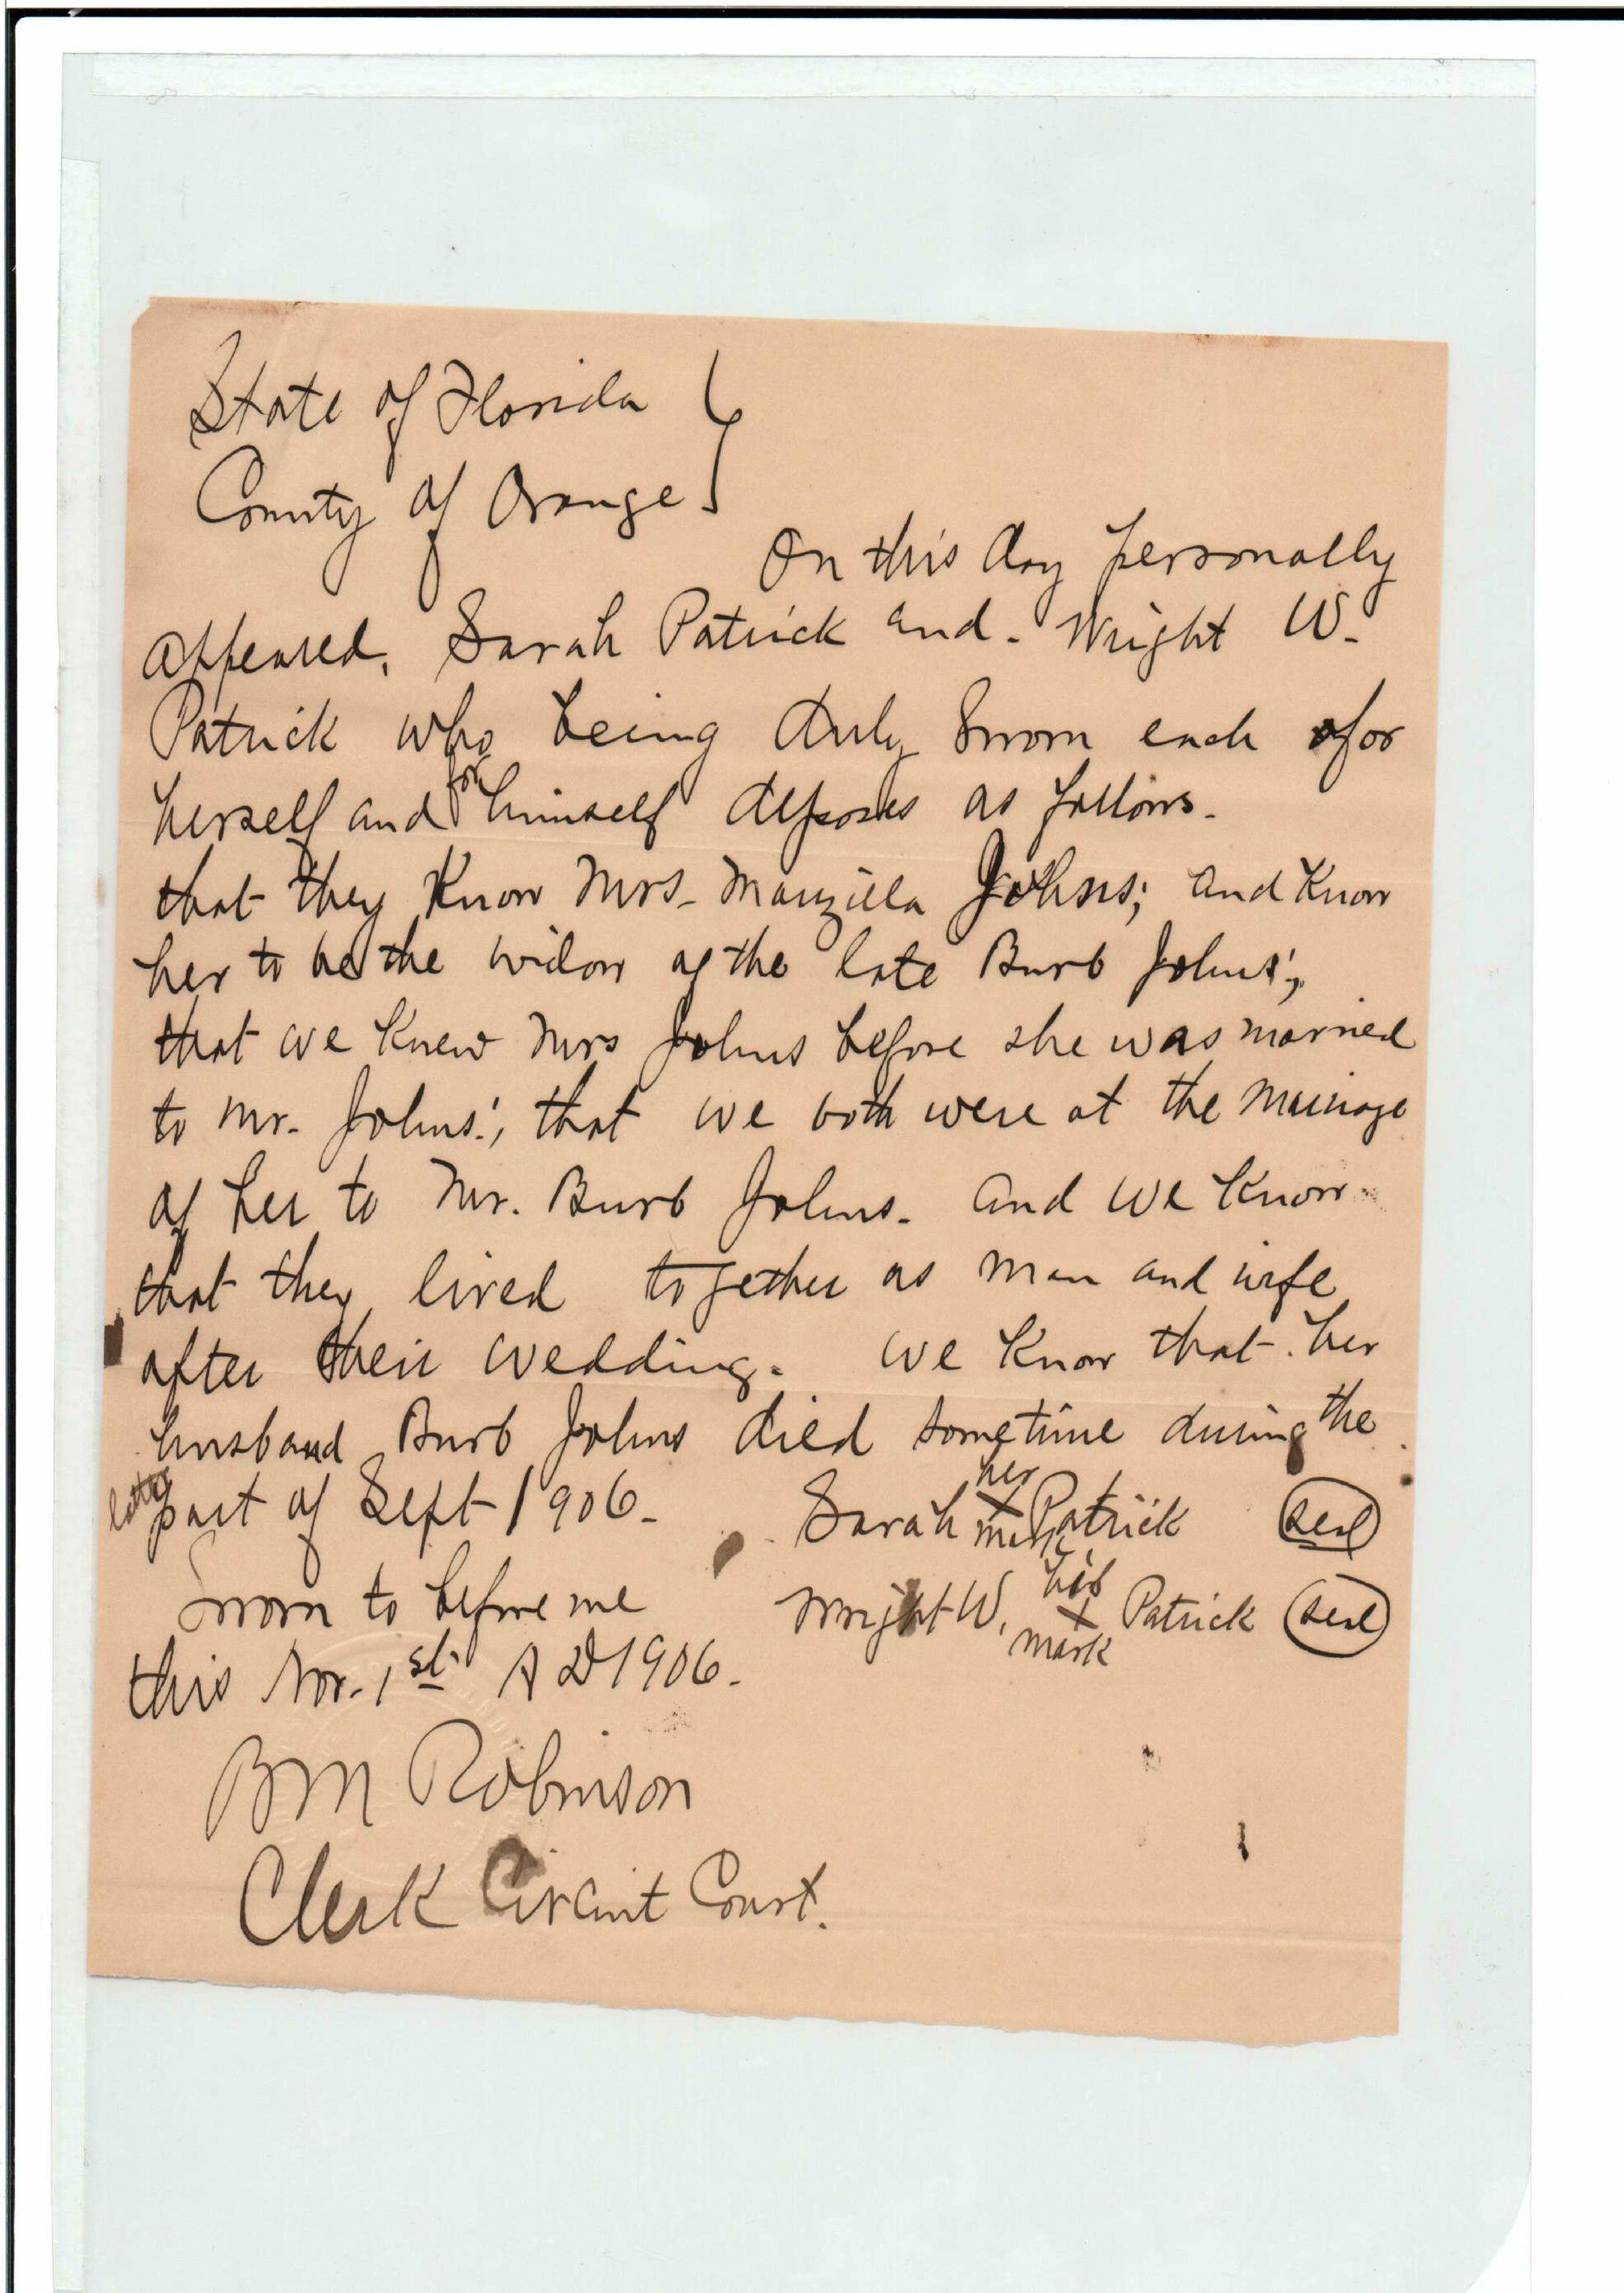 State of Florida }
County of Orange }
On this day personally
appeared, Sarah Patrick and. Wright W.
Patrick who being duly sworn each for
herself and for himself deposes as follows.
that they Know Mrs. Manzilla Johns; and Know
her to be the widow of the late Burb Johns;
that we Knew Mrs Johns before she was married
to Mr. Johns; that we both were at the marriage
of her to Mr. Burb Johns. and we Know
that they lived together as man and wife
after their wedding. we Know that her
husband Burb Johns died sometime during the
latter part of Sept 1906. Sarah her X mark Patrick (seal)
Sworn to before me Wright W. his X mark Patrick (seal)
this Nov. 1st A D 1906.
B M Robinson
Clerk Circuit Court.